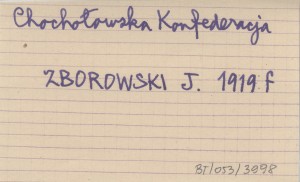 Chochołowska Konfederacja
ZBOROWSKI J. 1919 f
BI/053/3898